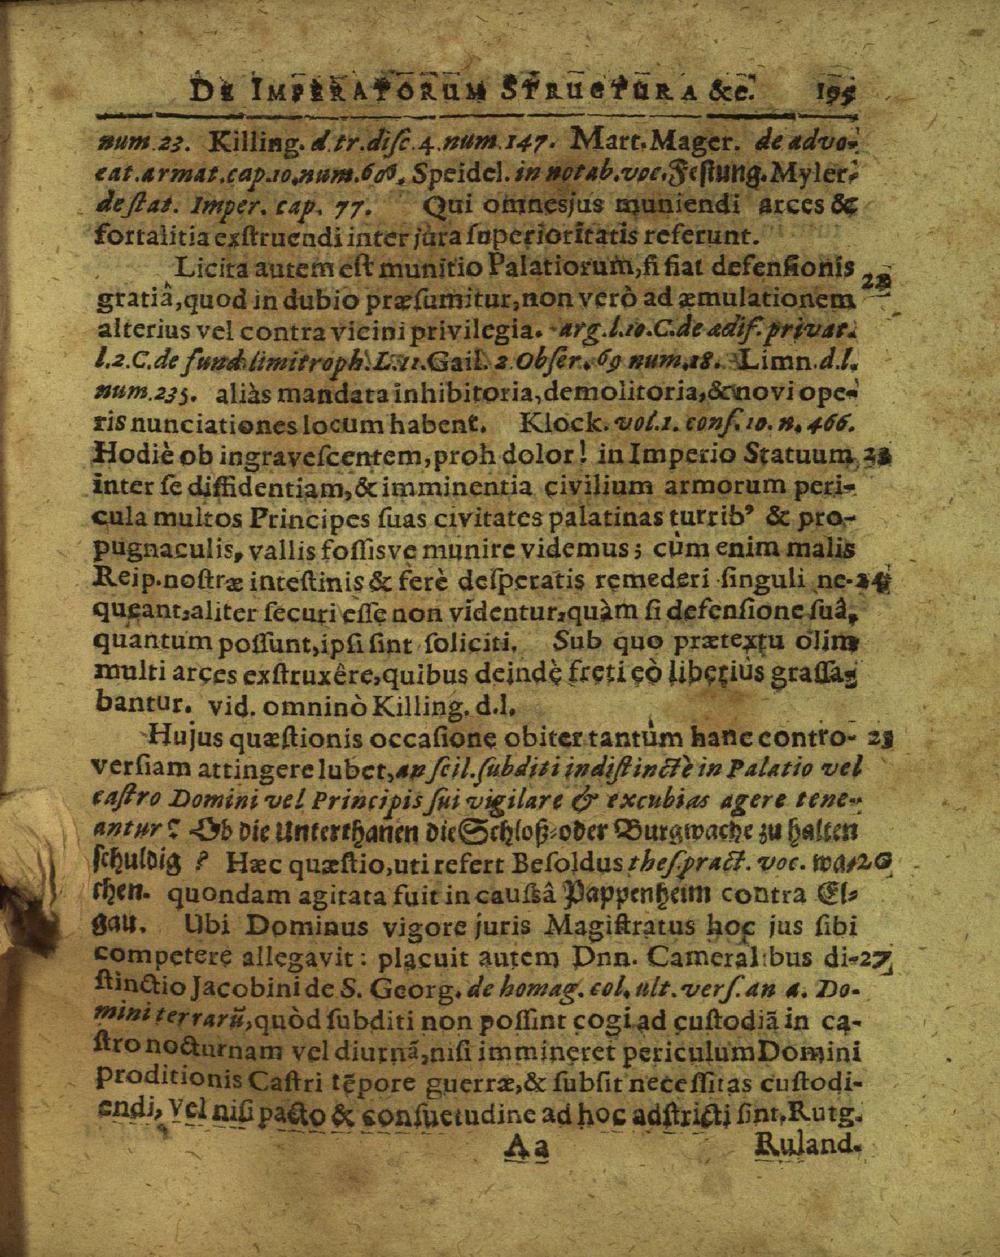 DE IMPERATORUM STRUCTURA &c. 195
num. 23. Killing. d. tr. disc. 4. num. 147. Mart. Mager. de advo-
cat. armat. cap. 10. num. 606. Speidel. in notab. voc. Festung. Myler.
de stat. Imper. cap. 77. Qui omnes jus muniendi arces &
fortalitia exstruendi inter jura superioritatis referunt.
Licita autem est munitio Palatiorum, si fiat defensionis
gratiâ, quod in dubio præsumitur, non verò ad æmulationem
alterius vel contra vicini privilegia. arg. l. 10. C. de ædif. privat.
l. 2. C. de fund. limitroph. L. 11. Gail. 2 Obser. 69 num. 18. Limn. d. l.
num. 235. aliàs mandata inhibitoria, demolitoria, & novi ope-
ris nunciationes locum habent. Klock. vol. 1. cons. 10. n. 466.
Hodiè ob ingravescentem, proh dolor! in Imperio Statuum
inter se diffidentiam, & imminentia civilium armorum peri-
cula multos Principes suas civitates palatinas turrib⁹ & pro-
pugnaculis, vallis fossisve munire videmus; cùm enim malis
Reip. nostræ intestinis & ferè desperatis remederi singuli ne- 24
queant, aliter securi esse non videntur, quàm si defensione suâ,
quantum possunt, ipsi sint soliciti. Sub quo prætextu olim
multi arces exstruxêre, quibus deindè freti eò liberiùs grassa-
bantur. vid. omninò Killing. d. l.
Hujus quæstionis occasione obiter tantùm hanc contro- 25
versiam attingere lubet, an scil. subditi indistinctè in Palatio vel
castro Domini vel Principis sui vigilare & excubias agere tene-
antur? Ob die Unterthanen die Schloß-oder Burgwache zu halten
schuldig? Hæc quæstio, uti refert Besoldus thes. pract. voc. wa- 26
chen. quondam agitata fuit in caussâ Pappenheim contra El-
gau. Ubi Dominus vigore juris Magistratus hoc jus sibi
competere allegavit: placuit autem Dnn. Cameralibus di- 27
stinctio Jacobini de S. Georg. de homag. col. ult. vers. an a. Do-
mini terrarũ, quòd subditi non possint cogi ad custodiã in ca-
stro nocturnam vel diurnã, nisi immineret periculum Domini
proditionis Castri tẽpore guerræ, & subsit necessitas custodi-
endi, vel nisi pacto & consuetudine ad hoc adstricti sint, Rutg.
Aa Ruland.